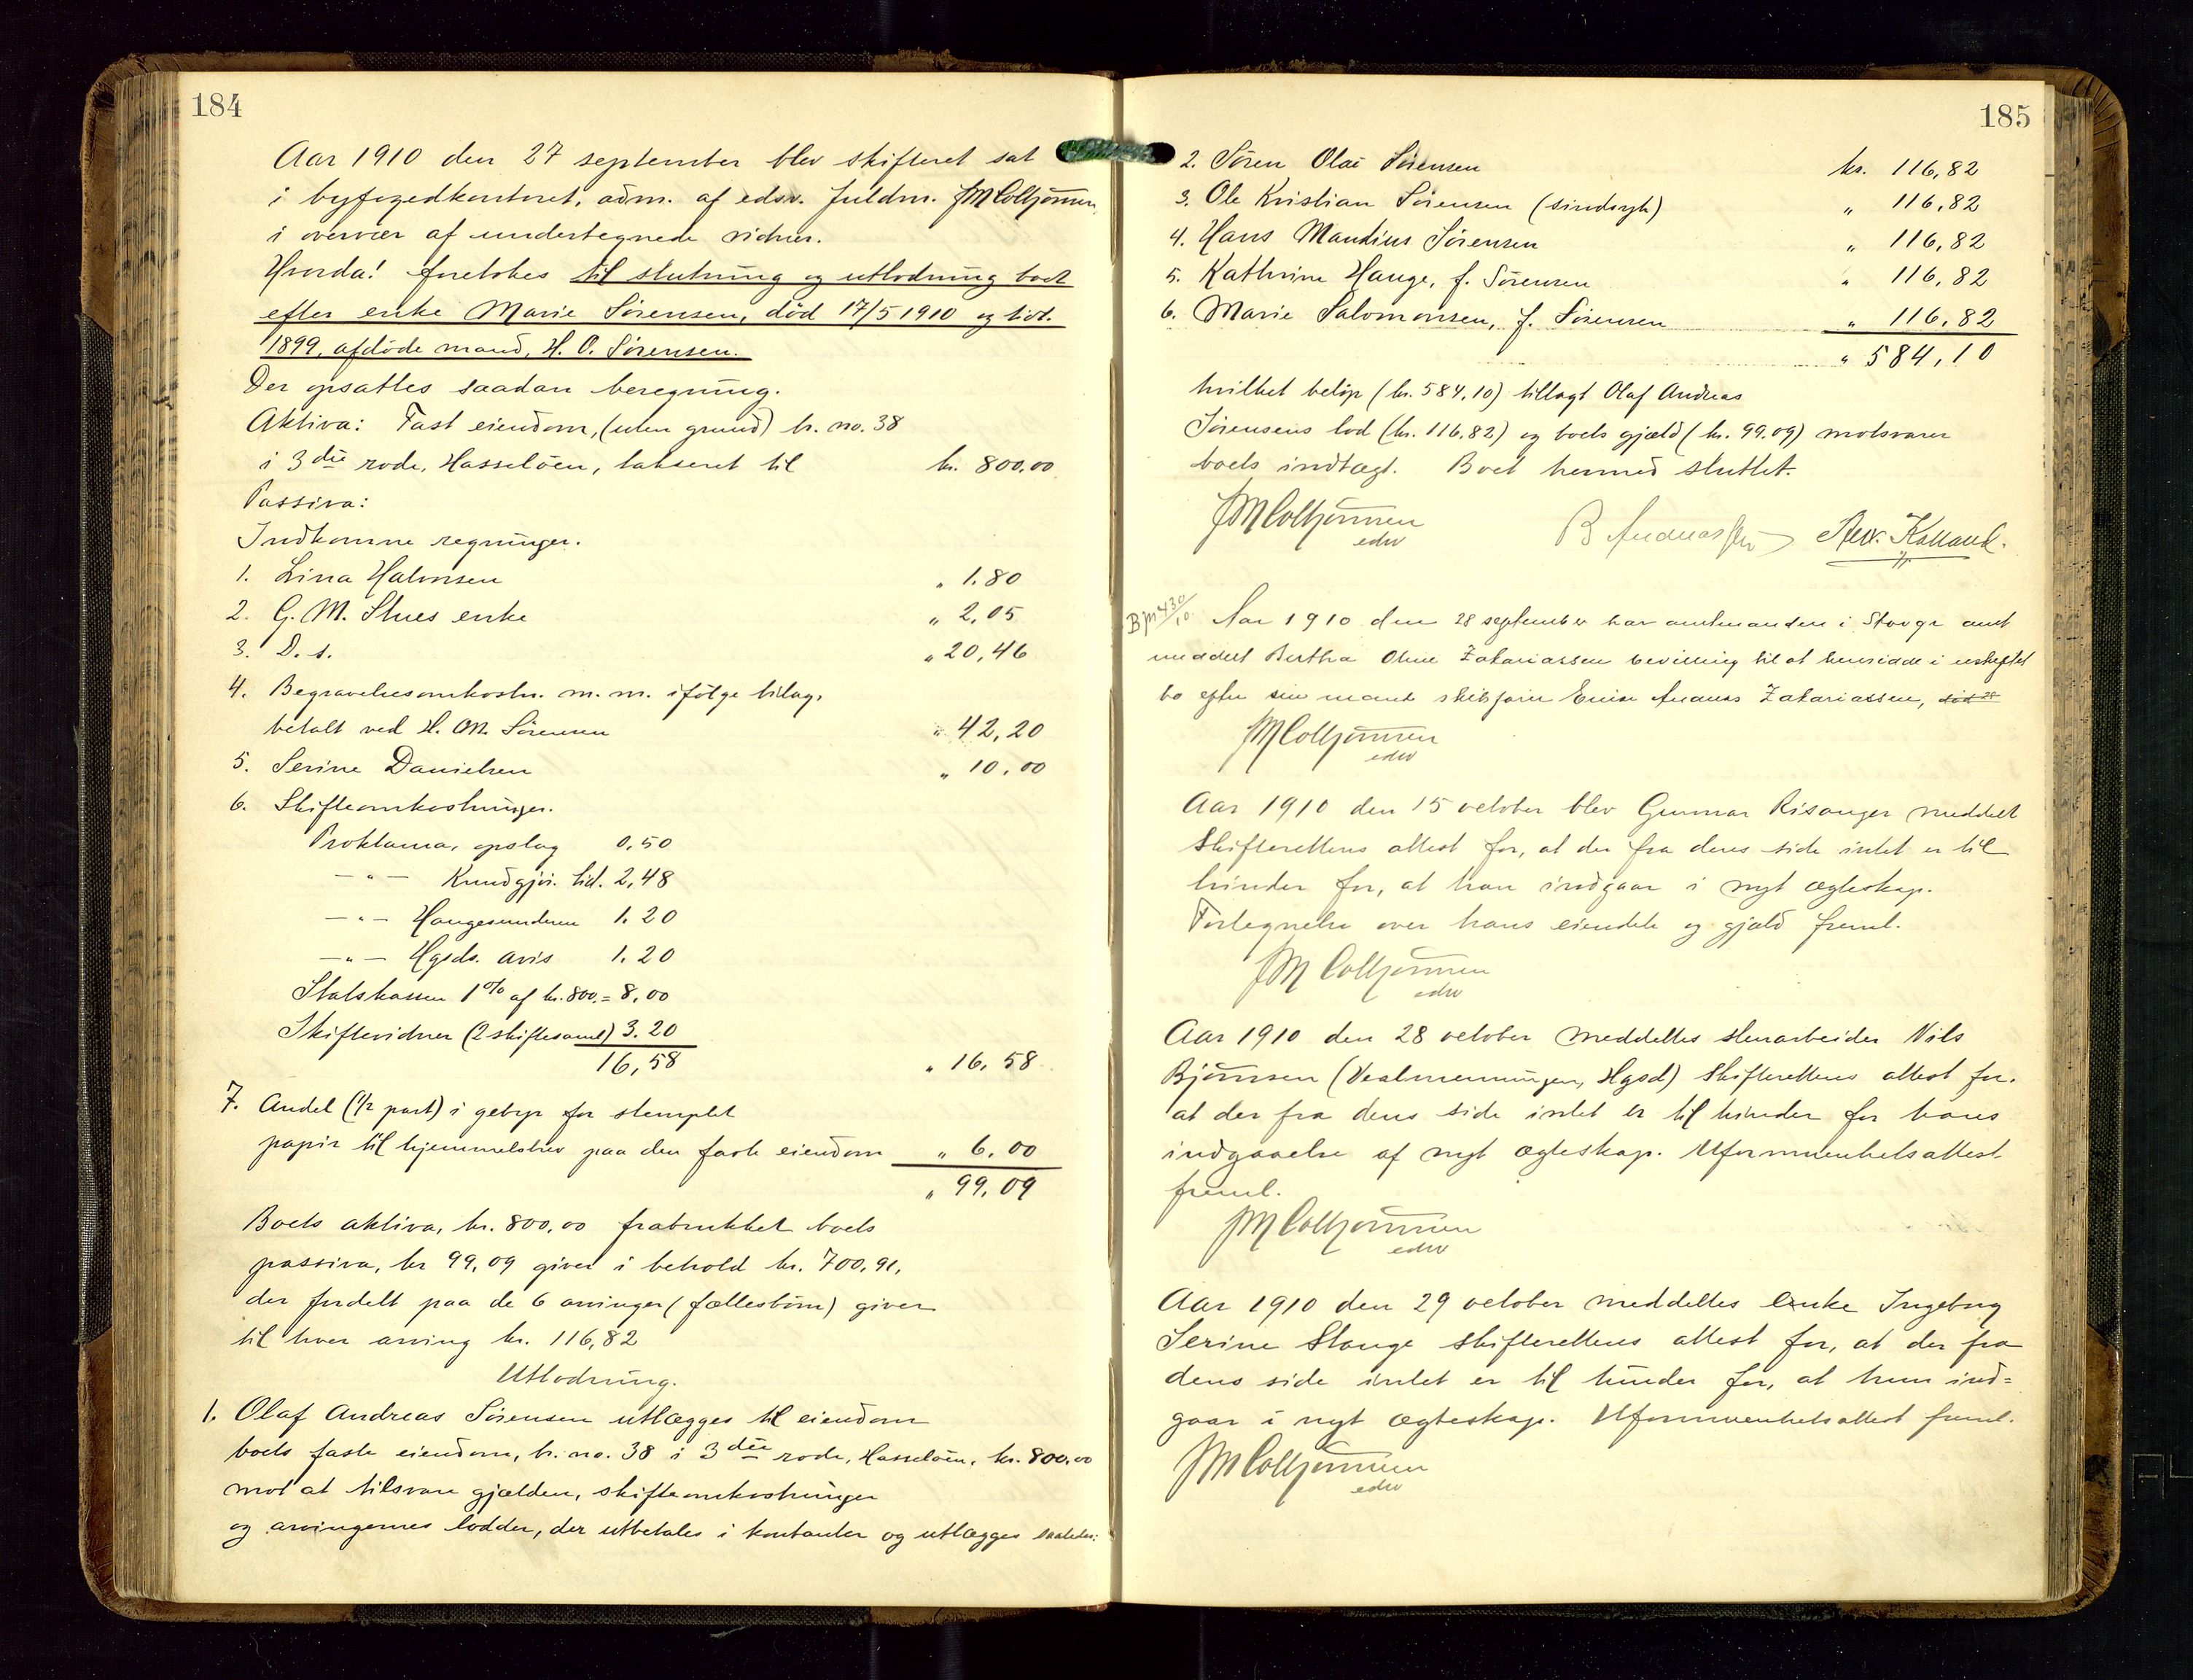 184
Aar 1910 den 27 september blev skifteret sat
i byfogedkontoret, adm. af edsv. fuldm.
i overvær af undertegnede vidner.
Hvorda! foretokes til slutning og utlodning boet
efter enke Marie Sörensen, död 17/5 1910 og tidl.
1899, afdöde mand, H. O. Sörensen.
Der opsattes saadan beregning.
Aktiva: Fast eiendom, (uten grund) br. no. 38
i 3die rode, Hasselöen, takseret til kr. 800,00
Passiva:
Indkomne regninger.
1. Lina Halvorsen " 1.80
2. G. M. Stues enke " 2,05
3. D. s. " 20,46
4. Begravelsesomkostn. m. m. ifölge bilag,
betalt ved H. Sörensen " 42,20
5. Serine Danielsen " 10.00
6. Skifteomkostninger.
Proklama, opslag 0,50
— " — Kundgjör. tid. 2,48
— " — Haugesunderen 1.20
— " — Hgsds. avis 1.20
Statskassen 1% af kr. 800. = 8,00
Skiftevidner (2 skiftesaml) 3.20
16,58 " 16,58
7. Andel (1/2 part) i gebyr for stemplet
papir til hjemmelsbrev paa den faste eiendom " 6,00
" 99,09
Boets aktiva, kr. 800,00 fratrukket boets
passiva, kr 99,09 giver i behold kr. 700,91,
der fordelt paa de 6 arvinger (fællesbörn) giver
til hver arving kr. 116,82
Utlodning.
1. Olaf Andreas Sörensen utlægges til eiendom
boets faste eiendom, br. no. 38 i 3die rode, Hasselöen, kr. 800,00
mot at tilsvare gjælden, skifteomkostninger
og arvingernes lodder, der utbetales i kontanter og utlægges saaledes:
185
2. Sören Olai Sörensen kr. 116,82
3. Ole Kristian Sörensen (sindsyk) " 116,82
4. Hans Mandius Sörensen " 116,82
5. Kathrine Hauge, f. Sörensen " 116,82
6. Marie Salomonsen, f. Sörensen " 116,82
" 584,10
hvilket belöp (kr. 584,10) tillagt Olaf Andreas
Sörensens lod (kr. 116,82) og boets gjæld (kr. 99.09) motsvarer
boets indtægt. Boet hermed sluttet.
edsv
Aar 1910 den 28 september har amtmanden i Stavgr amt
meddelt Bertha Oline Zakariassen bevilling til at hensidde i uskiftet
bo efter sin mand skibsförer Andreas Zakariassen, död 28
edsv
Aar 1910 den 15 october blev Gunnar Risanger meddelt
Skifterettens attest for, at der fra dens side intet er til
hinder for, at han indgaar i nyt ægteskap.
Fortegnelse over hans eiendele og gjæld freml.
edsv
Aar 1910 den 28 october meddeltes stenarbeider Nils
Björnsen (Vealmenningen, Hgsd) Skifterettens attest for,
at der fra dens side intet er til hinder for hans
indgaaelse af nyt ægteskap. Uformuenhetsattest
freml.
edsv
Aar 1910 den 29 october meddeltes enke Ingeborg
Serine Stange skifterettens attest for, at der fra
dens side intet er til hinder for, at hun ind=
gaar i nyt ægteskap. Uformuenhetsattest freml.
edsv